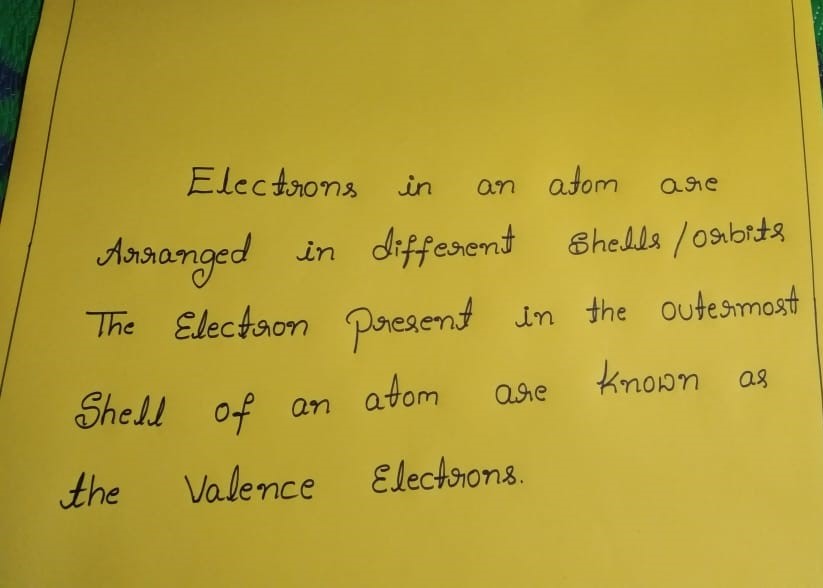 Electrons in an atom are
Arranged in different Shells / orbits
The Electron Present in the outermost
Shell of an atom are known as
the Valence Electrons.